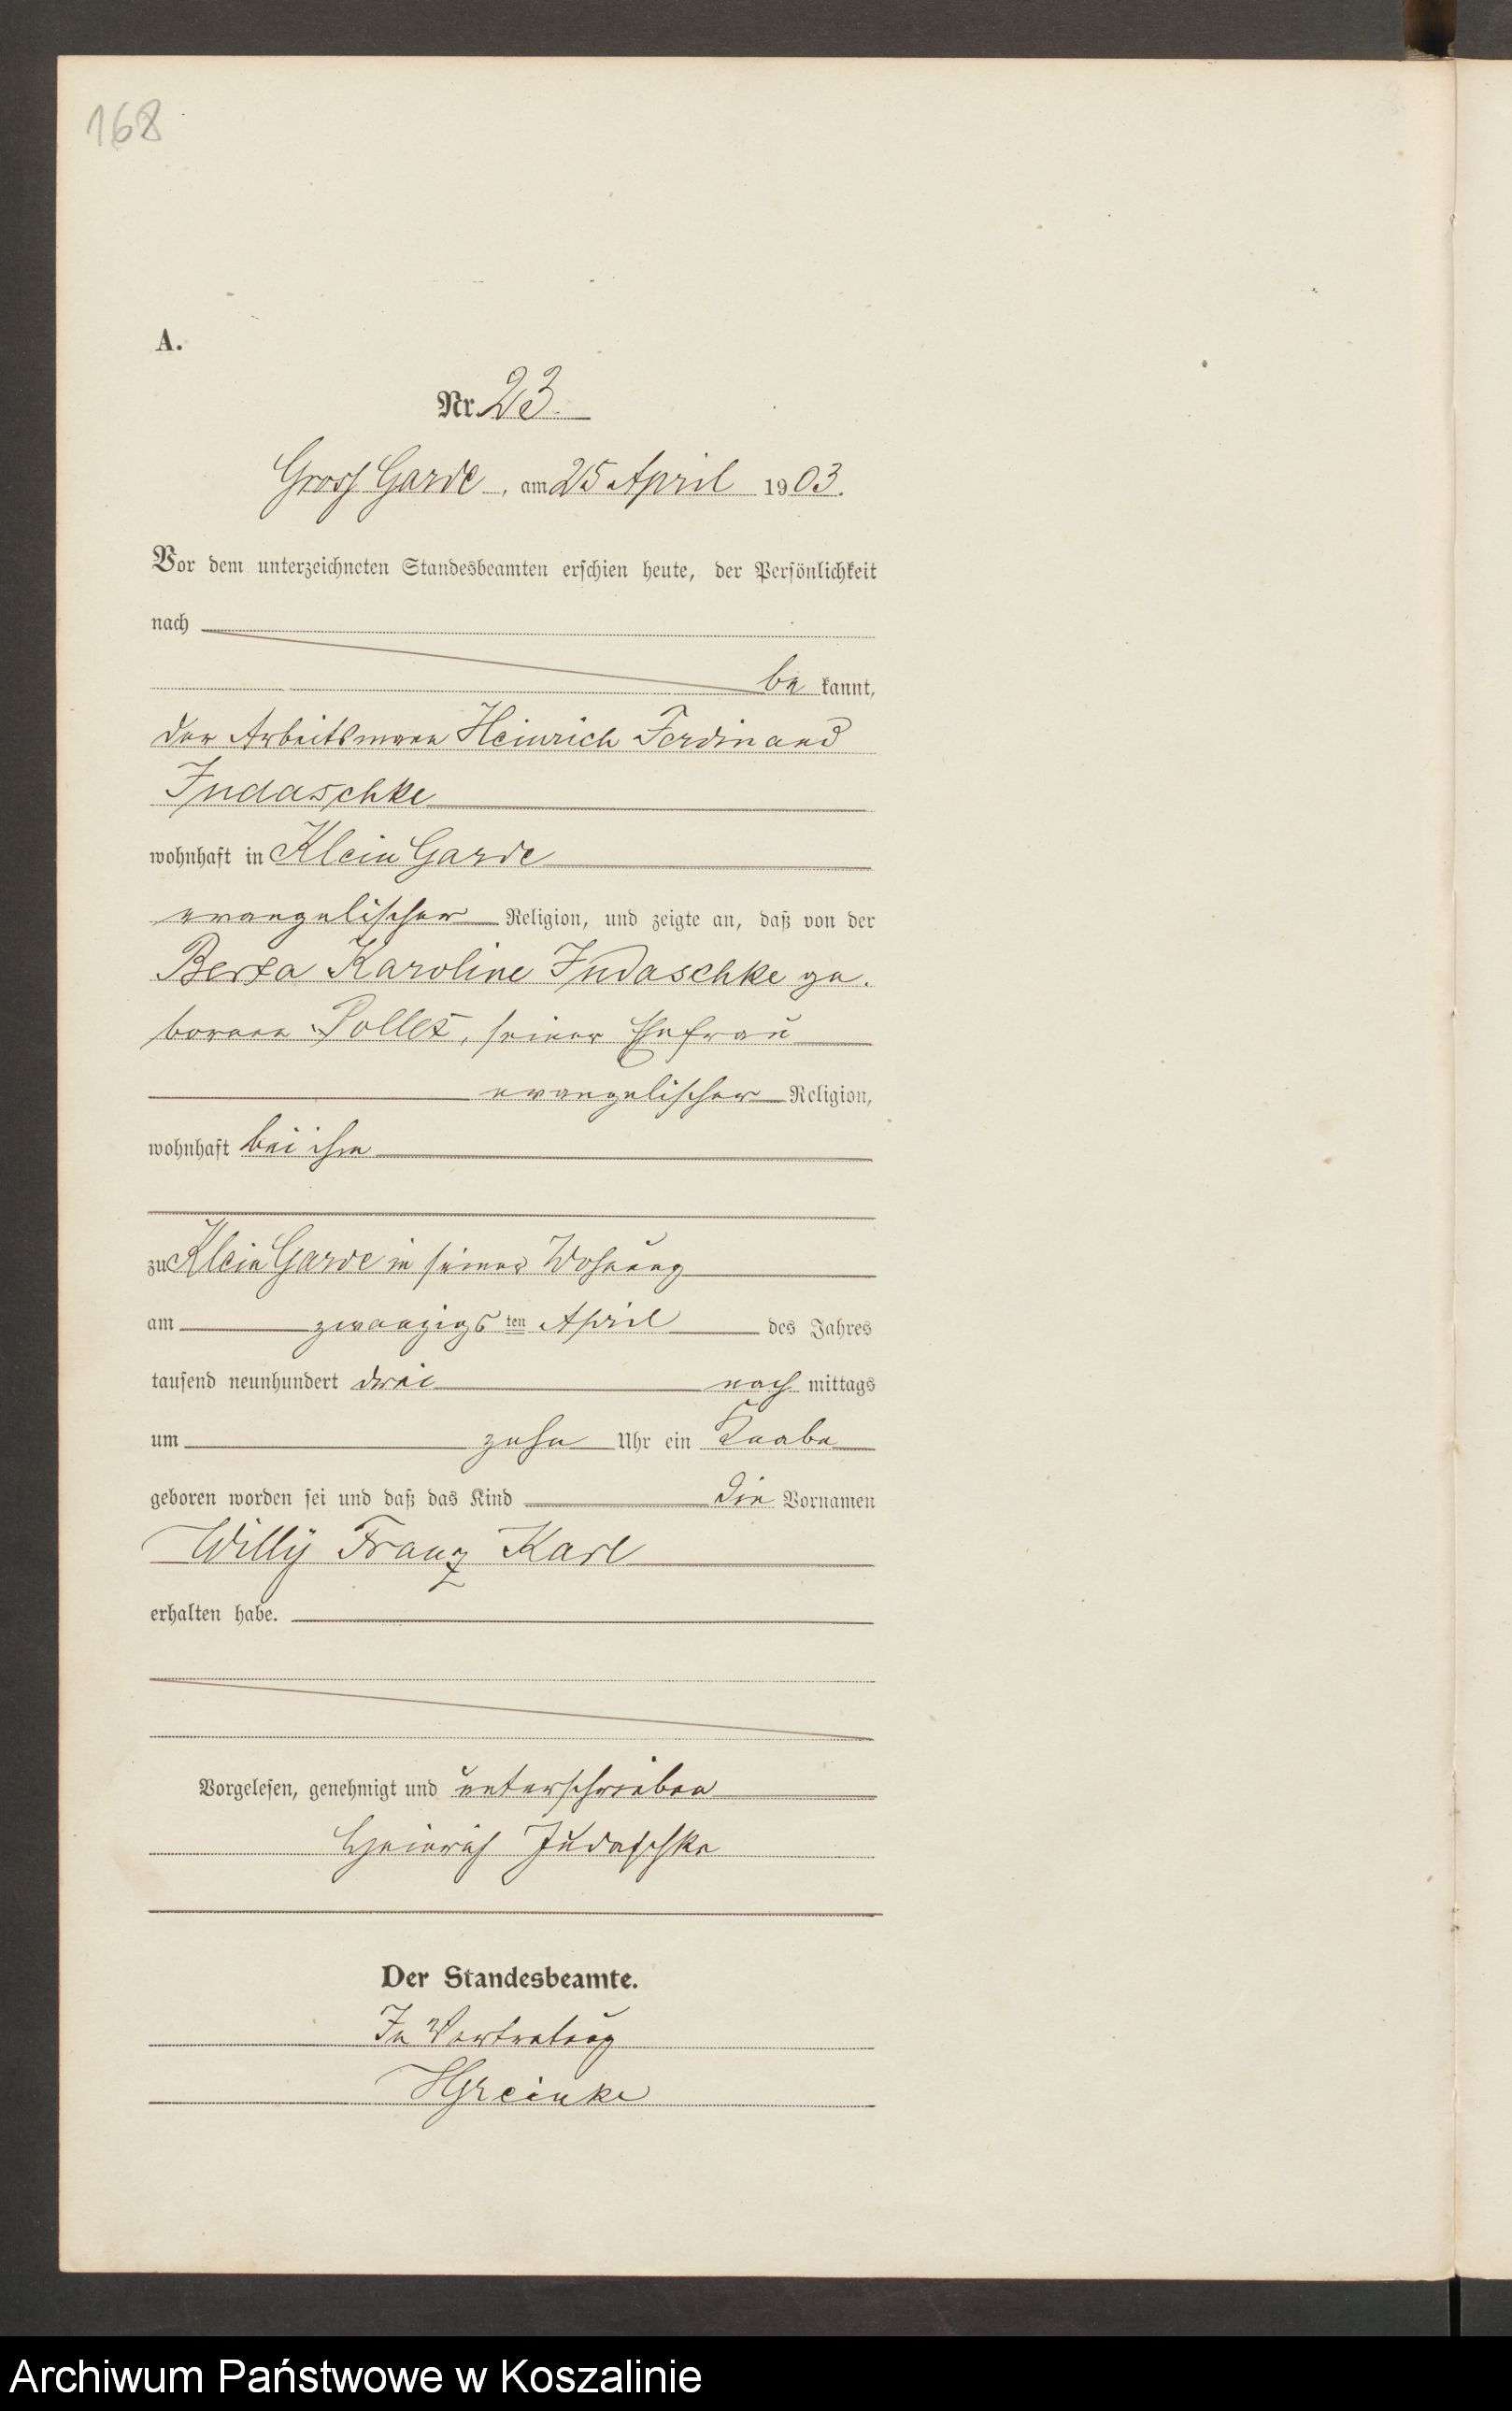 168
A.
Nr. 23.
Gross Garde, am 25 April 1903.
Vor dem unterzeichneten Standesbeamten erschien heute, der Persönlichkeit
nach
be kannt,
der Arbeitsmann Heinrich Ferdinand
Judaschke
wohnhaft in Klein Garde
evangelischer Religion, und zeigte an, daß von der
Berta Karoline Judaschke ge.
borenen Pollex, seiner Ehefrau
evangelischer Religion,
wohnhaft bei ihm
zu Klein Garde in seiner Wohnung
am zwanzigs ten April des Jahres
tausend neunhundert drei nach mittags
um zehn Uhr ein Knabe
geboren worden sei und daß das Kind die Vornamen
Willÿ Franz Karl
erhalten habe.
Vorgelesen, genehmigt und unterschrieben
Heinrich Judaschke
Der Standesbeamte.
In Vertretung
HGreinke
Archiwum Państwowe w Koszalinie